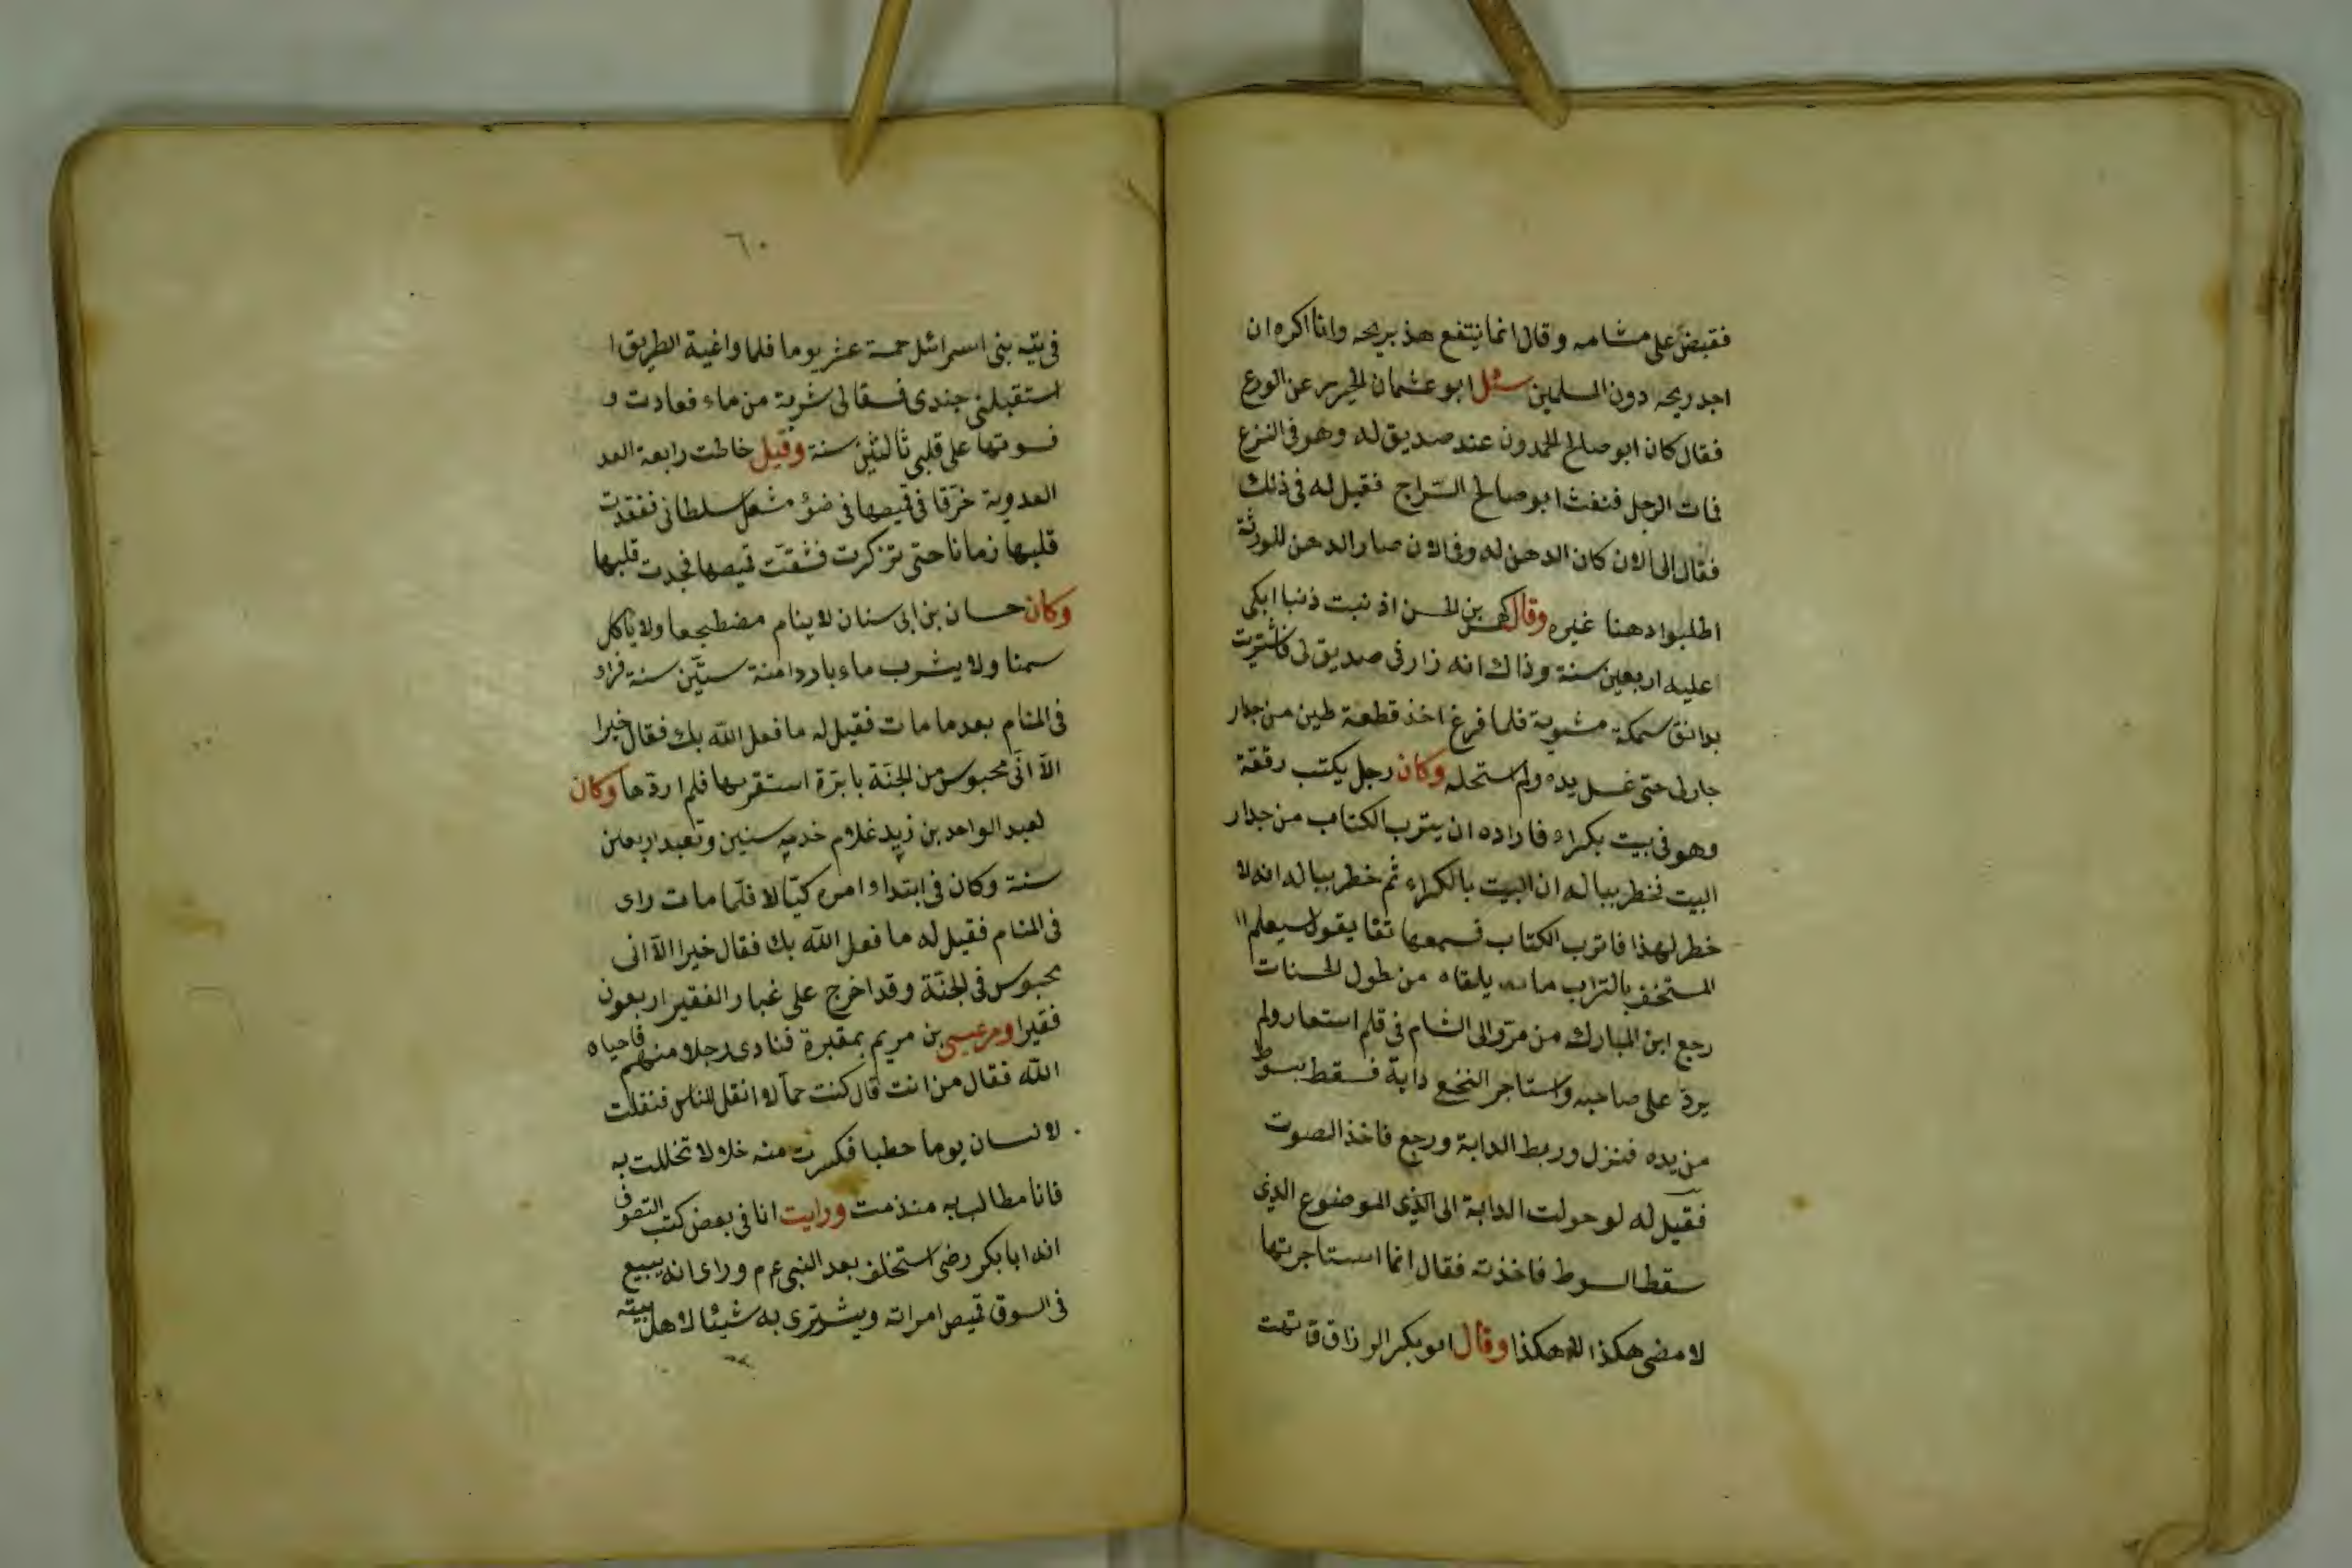 فقبض على مشامه وقال انما ينتفع هذ بريحه وانا اكره ان
اجد ريحه دون المسلمين سئل ابو عثمان الحيرى عن الورع
فقال كان ابو صالح الحمدون عند صديق له وهو فى النزع
فمات الرجل فنفث ابو صالح السّراج فقيل له فى ذلك
فقال الى الان كان الدهن له وفى الان صار الدهن للورثة
اطلبوا دهنا غيره وقال كهمس بن الحسن اذنبت ذنبا ابكى
عليه اربعين سنة وذاك انه زارنى صديق لى فاشتريت
بدانق سمكة مشوية فلما فرغ اخذ قطعة طين من جدار
جار لى حتى غسل يده ولم استحله وكان رجل يكتب رقعة
وهو فى بيت بكراء فاراده ان يترب الكتاب من جدار
البيت فخطر بباله ان البيت بالكراء ثم خطر بباله انه لا
خطر لهذا فاترب الكتاب فسمع هاتفا يقول سيعلم
المستخف بالتراب ما يلقاه من طول الحسنات
رجع ابن المبارك من مرو الى الشام فى قلم استعار ولم
يردّ على صاحبه واستاجر النخع دابة فسقط سوط
من يده فنزل وربط الدابة ورجع فاخذ الصوت
فقيل له لو حولت الدابة الى الذى الموضوع الذى
سقط السوط فاخذته فقال انما استاجرتها
لامضى هكذا لا هكذا وقال ابو بكر الرزاق تهت
٦٠
فى تيه بنى اسرائل خمسة عشر يوما فلما واغية الطريق ا
استقبلنى جندى فسقا لى شربة من ماء فعادت و
قسوتها على قلبى ثالثين سنة وقيل خاطت رابعة العد
العدوية خرقا فى قميصها فى ضوء مشعل سلطانى ففقدت
قلبها زمانا حتى تزكرت فشقت قميصها فجدت قلبها
وكان حسان بن ابى سنان لا ينام مضطجعا ولا ياكل
سمنا ولا يشرب ماء باردا منة ستّين سنة فراء
فى المنام بعد ما مات فقيل له ما فعل الله بك فقال خيرا
الّا انّى محبوس من الجنّة بابرة استقرىها فلم اردّها وكان
لعبد الواحد بن زيد غلام خدمه سنين وتعبد اربعين
سنة وكان فى ابتداء امره كيّالا فلّما مات راى
فى المنام فقيل له ما فعل الله بك فقال خيرا الّا انى
محبوس فى الجنّة وقد اخرج على غبار الفقير اربعون
فقيرا ومر عيسى بن مريم بمقبرة فنادى رجلا منهم فاحياه
الله فقال من انت قال كنت حمّالا انقل للناس فنقلت
لانسان يوما حطبا فكسرت منه خلالا تخللت به
فانا مطالب به منذ مت ورايت انا فى بعض كتب التصوف
انه ابا بكر رضى استخلف بعد النبى ءم وراى انه يبيع
فى السوق قميص امراته ويشترى به شيئا لاهل بيته